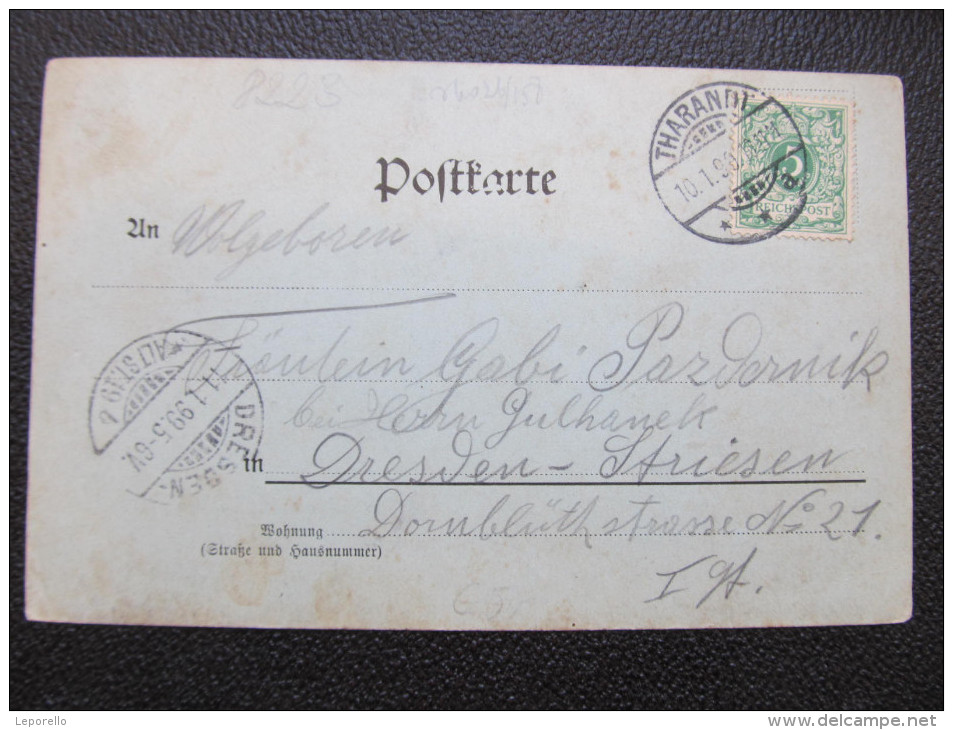 8223
THARANDT
10.1.99
5
REICHSPOST
Postkarte
An Wolgeboren
Fräulein Gabi Pazdernik
bei Herrn Julhanek
in Dresden-Striesen
Wohnung Dornblüthstrasse No 21.
(Straße und Hausnummer)
I
DRESDEN
ALTST.19
11.1.99.5-6V.
Leporello
www.delcampe.net